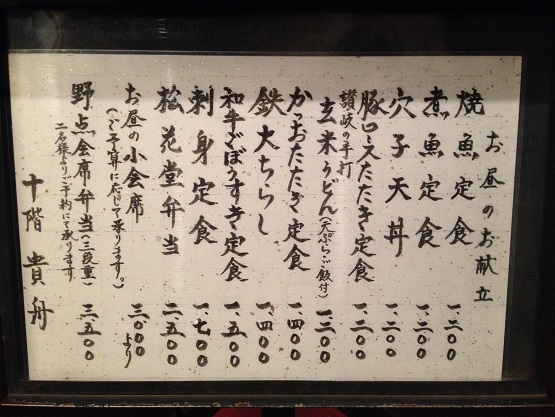 お昼のお献立
焼魚定食 一、二〇〇
煮魚定食 一、二〇〇
穴子天丼 一、二〇〇
豚ロースたたき定食 一、二〇〇
讃岐の手打
玄米うどん(天ぷら・ご飯付) 一、二〇〇
かつおたたき定食 一、四〇〇
鉄火ちらし 一、四〇〇
和牛ごぼうすき定食 一、五〇〇
刺身定食 一、七〇〇
松花堂弁当 二、五〇〇
お昼の小会席 三、〇〇〇より
(ご予算に応じて承ります。)
野点会席弁当(三段重) 三、五〇〇
二名様よりご予約にて承ります
十階 貴舟